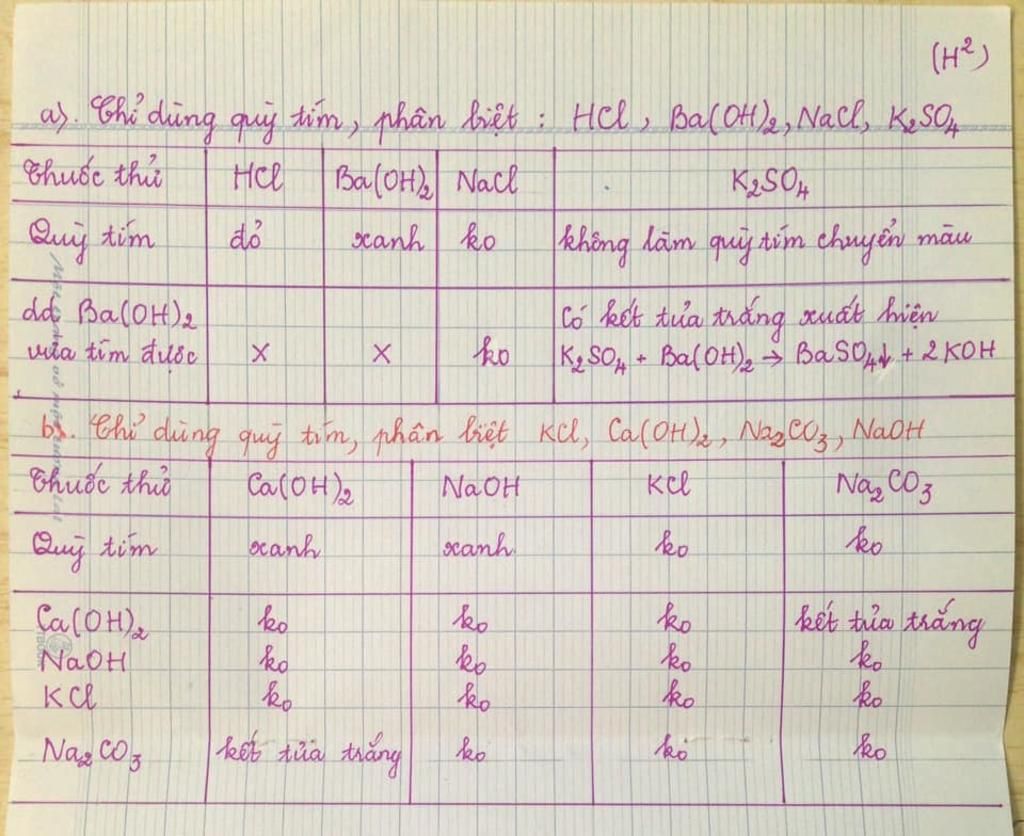 (H²)
a). Chỉ dùng quỳ tím, phân biệt : HCl, Ba(OH)₂, NaCl, K₂SO₄
Thuốc thử HCl Ba(OH)₂ NaCl K₂SO₄
Quỳ tím đỏ xanh ko không làm quỳ tím chuyển màu
dd Ba(OH)₂ Có kết tủa trắng xuất hiện
vừa tìm được x x ko K₂SO₄ + Ba(OH)₂ → BaSO₄↓ + 2KOH
b). Chỉ dùng quỳ tím, phân biệt KCl, Ca(OH)₂, Na₂CO₃, NaOH
Thuốc thử Ca(OH)₂ NaOH KCl Na₂CO₃
Quỳ tím xanh xanh ko ko
Ca(OH)₂ ko ko ko kết tủa trắng
NaOH ko ko ko ko
KCl ko ko ko ko
Na₂CO₃ kết tủa trắng ko ko ko